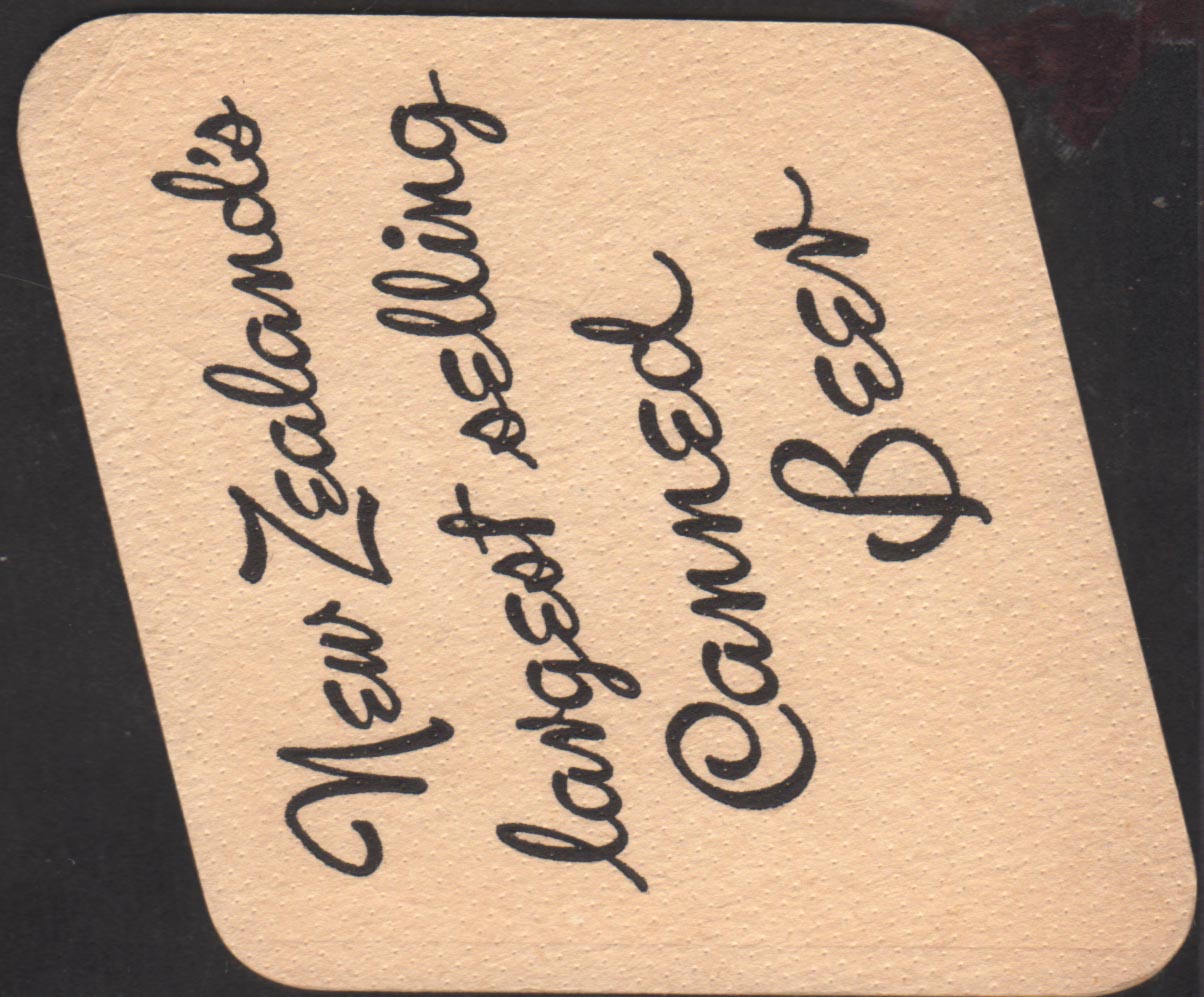 New Zealand's
largest selling
Canned
Beer